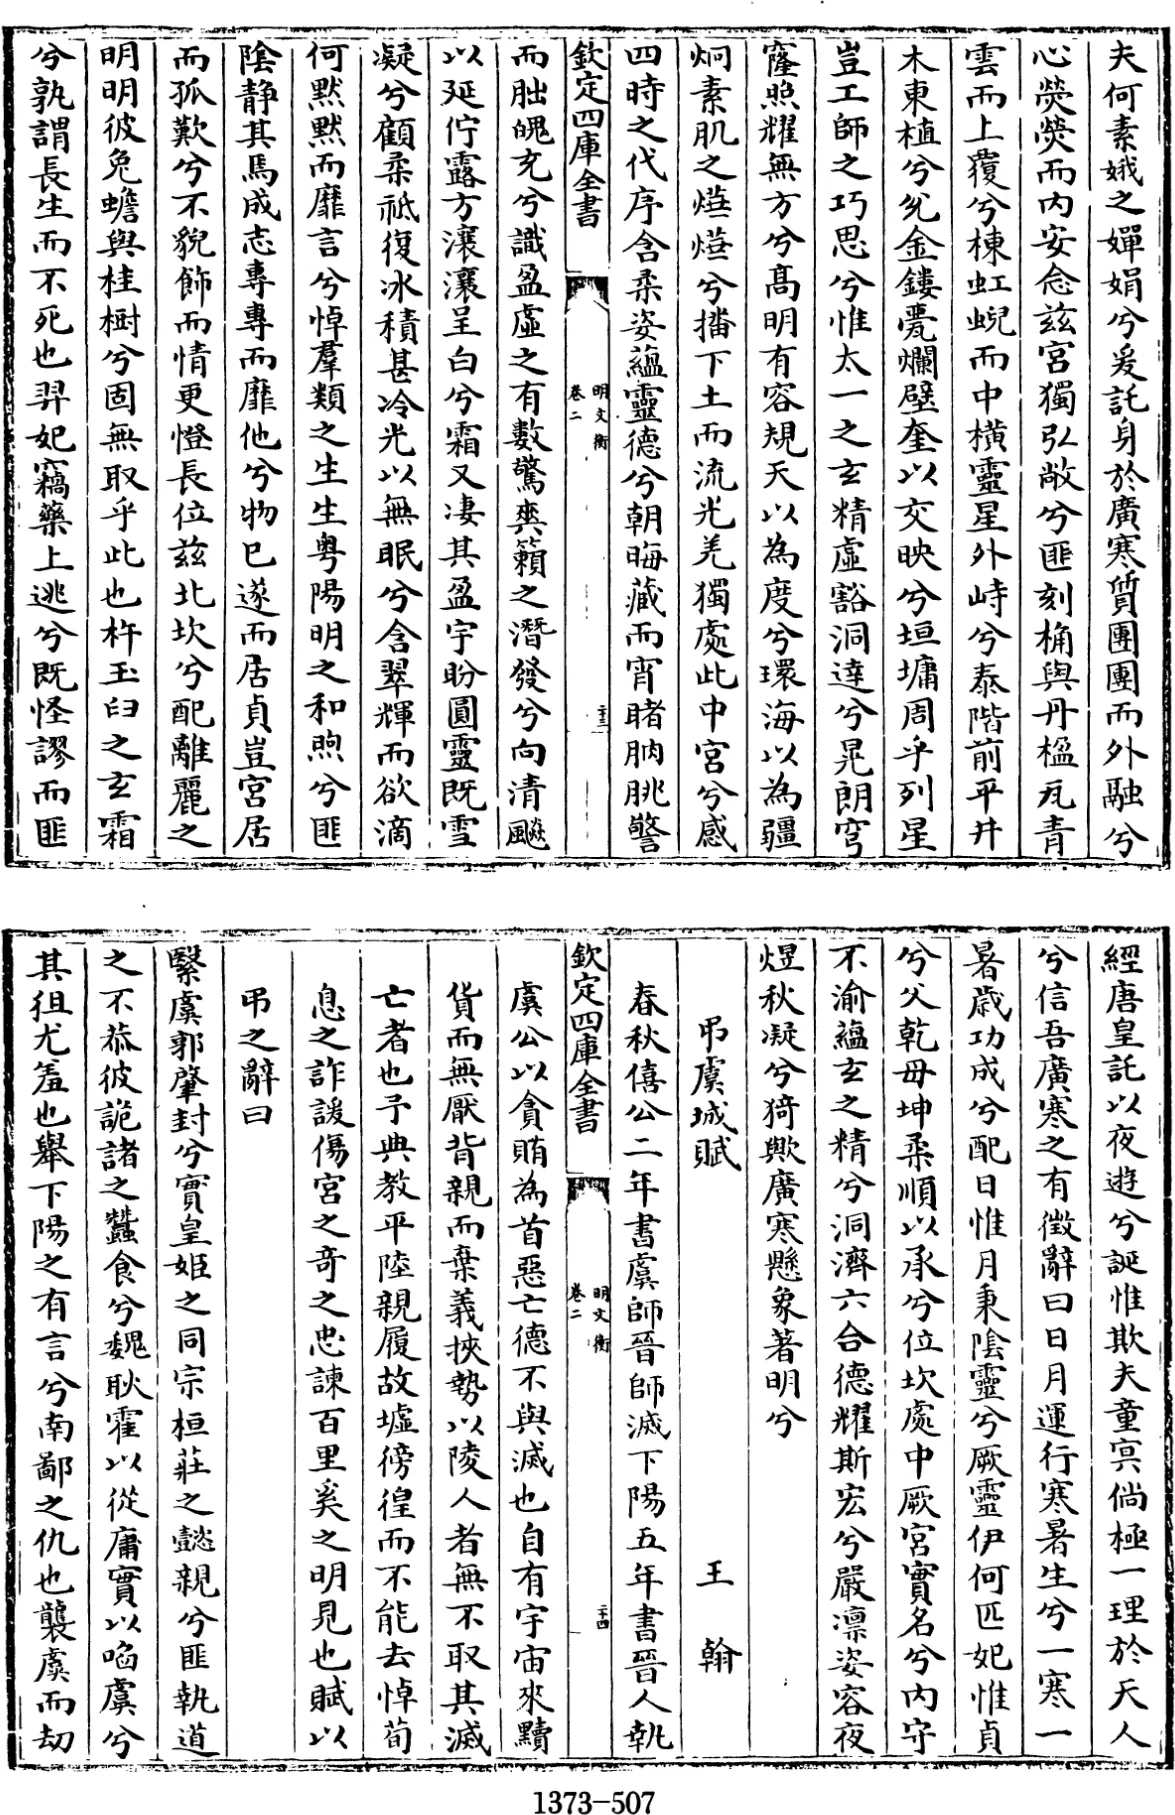 夫何素娥之嬋娟兮爰託身於廣寒質團團而外融兮
心熒熒而內安念兹宮獨弘敞兮匪刻桷與丹楹瓦青
雲而上覆兮棟虹蜺而中橫靈星外峙兮泰階前平井
木東植兮允金鏤甍爛壁奎以交映兮垣墉周乎列星
豈工師之巧思兮惟太一之玄精虛豁洞達兮晃朗穹
窿照耀無方兮髙明有容規天以為度兮環海以為疆
炯素肌之燁燁兮播下土而流光羌獨處此中宮兮感
四時之代序含柔姿蘊靈德兮朝晦藏而宵睹朒朓警
欽定四庫全書
明文衡
卷二
二十三
而朏魄充兮識盈虛之有數驚爽籟之潛發兮向清飈
以延佇露方瀼瀼呈白兮霜又凄其盈宇盼圓靈既雪
凝兮顧柔祗復冰積甚冷光以無眠兮含翠輝而欲滴
何默默而靡言兮悼羣類之生生粵陽明之和煦兮匪
陰静其焉成志專專而靡他兮物已遂而居貞豈宮居
而孤歎兮不貌飾而情更憕長位兹北坎兮配離麗之
明明彼兔蟾與桂樹兮固無取乎此也杵玉臼之玄霜
兮孰謂長生而不死也羿妃竊藥上逃兮既怪謬而匪
經唐皇託以夜遊兮誕惟欺夫童㝠倘極一理於天人
兮信吾廣寒之有徵辭曰日月運行寒暑生兮一寒一
暑歲功成兮配日惟月秉陰靈兮厥靈伊何匹妃惟貞
兮父乾母坤柔順以承兮位坎處中厥宮實名兮内守
不渝藴玄之精兮洞濟六合德耀斯宏兮嚴凛姿容夜
煜秋凝兮猗歟廣寒懸象著明兮
弔虞城賦
王翰
春秋僖公二年書虞師晉師滅下陽五年書晉人執
欽定四庫全書
明文衡
卷二
二十四
虞公以貪賄為首惡亡德不與滅也自有宇宙來黷
貨而無厭背親而棄義挾勢以陵人者無不取其滅
亡者也予典教平陸親履故墟徬徨而不能去悼荀
息之詐諼傷宮之竒之忠諫百里奚之明見也賦以
弔之辭曰
繄虞郭肇封兮實皇姬之同宗桓莊之懿親兮匪執道
之不恭彼詭諸之蠶食兮魏耿霍以從庸實以啗虞兮
其徂尤羞也舉下陽之有言兮南鄙之仇也襲虞而劫
1373-507